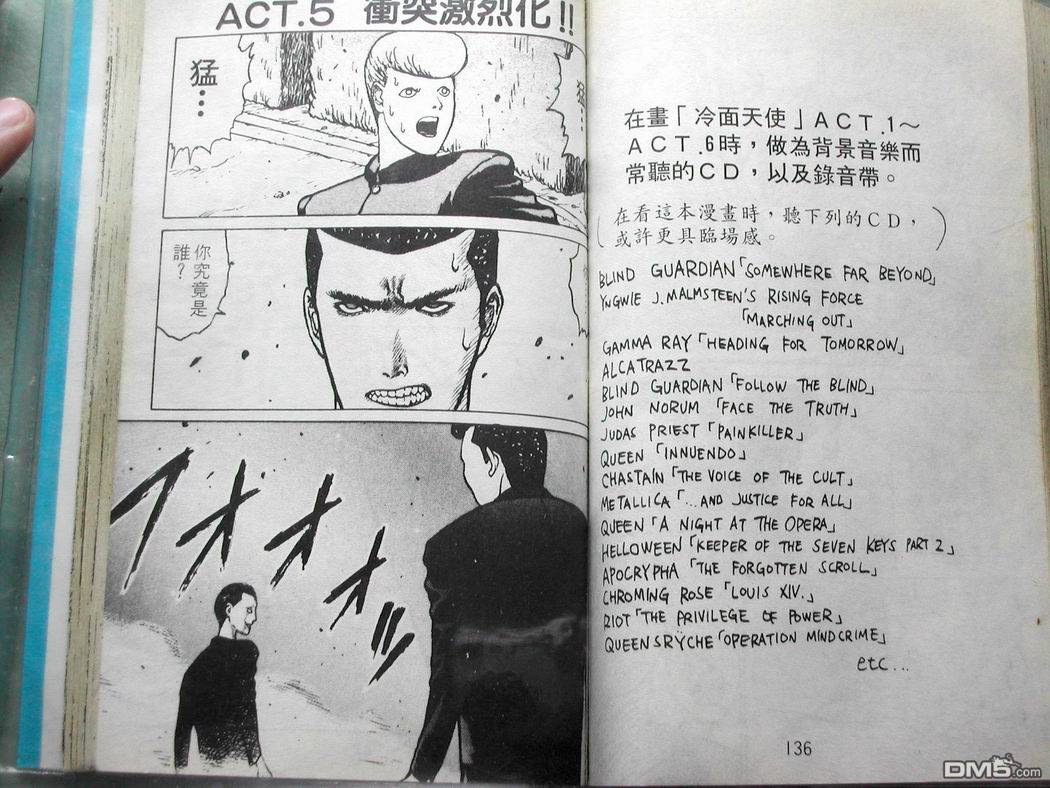 ACT.5 衝突激烈化!!
猛…
你究竟是
誰?
フオオオッ
在畫「冷面天使」ACT.1～
ACT.6時，做為背景音樂而
常聽的CD，以及錄音帶。
(在看這本漫畫時，聽下列的CD，
或許更具臨場感。)
BLIND GUARDIAN「SOMEWHERE FAR BEYOND」
YNGWIE J.MALMSTEEN'S RISING FORCE
「MARCHING OUT」
GAMMA RAY「HEADING FOR TOMORROW」
ALCATRAZZ
BLIND GUARDIAN「FOLLOW THE BLIND」
JOHN NORUM「FACE THE TRUTH」
JUDAS PRIEST「PAINKILLER」
QUEEN「INNUENDO」
CHASTAIN「THE VOICE OF THE CULT」
METALLICA「...AND JUSTICE FOR ALL」
QUEEN「A NIGHT AT THE OPERA」
HELLOWEEN「KEEPER OF THE SEVEN KEYS PART 2」
APOCRYPHA「THE FORGOTTEN SCROLL」
CHROMING ROSE「LOUIS XIV.」
RIOT「THE PRIVILEGE OF POWER」
QUEENSRŸCHE「OPERATION MINDCRIME」
etc...
136
DM5.com